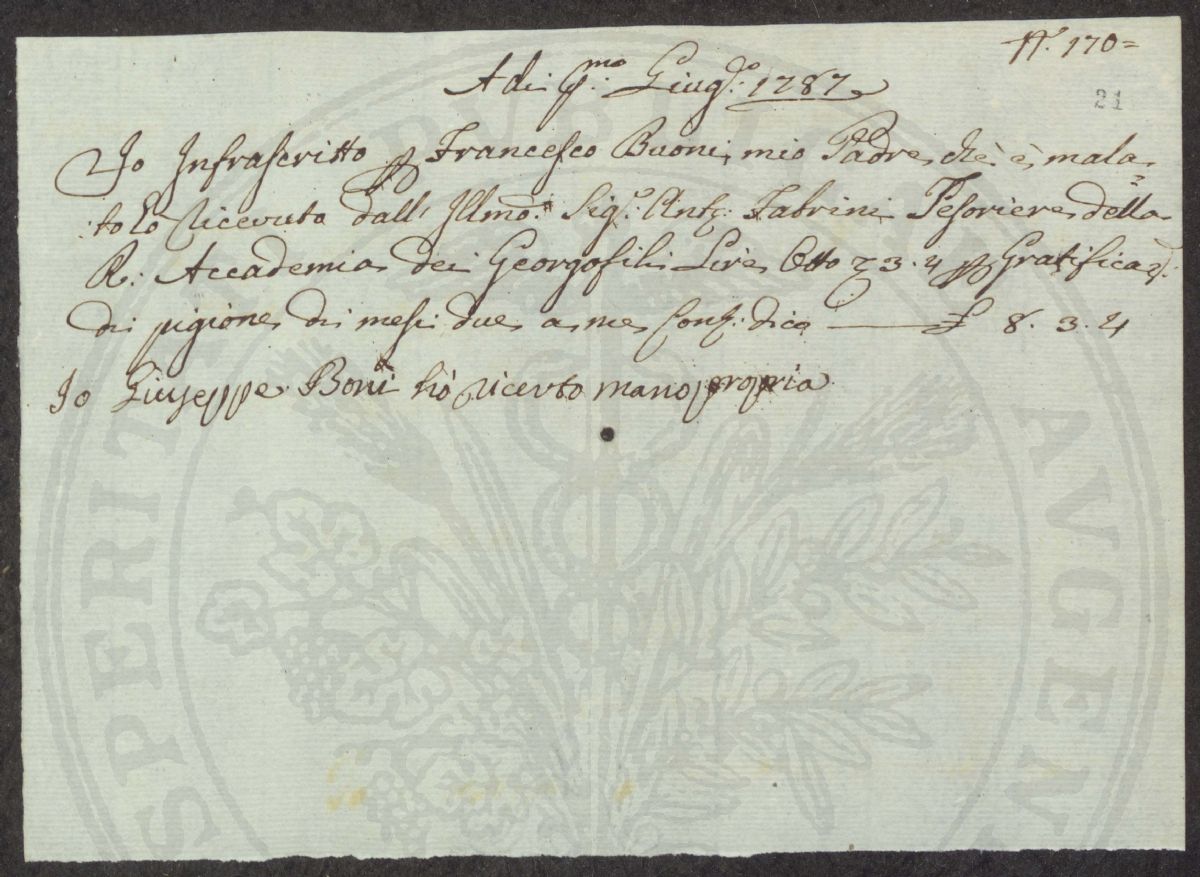 N.° 170=
Adi p.mo Giug.o 1787
21
Io Infrascritto p Francesco Buoni mio Padre che è mala=
to ho ricevuto dall' Illmo: Sig.e Ant.o Fabrini Tesoriere della
R: Accademia dei Georgofili Lire Otto 3.4 p Gratificaz:
di pigione di mesi due a me Cont: dico —— £ 8.3.4
Io Giuseppe Boni hò ricevto mano propria
PVBLICAE
SPERITA
AVGEN